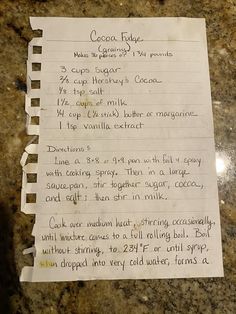 Cocoa Fudge
(grainy)
Makes 36 pieces or 1 3/4 pounds
3 cups sugar
2/3 cup Hershey's Cocoa
1/8 tsp salt
1 1/2 cups of milk
1/4 cup (1/2 stick) butter or margarine
1 tsp vanilla extract
Directions:
Line a 8x8 or 9x9 pan with foil & spray
with cooking spray. Then in a large
saucepan, stir together sugar, cocoa,
and salt; then stir in milk.
Cook over medium heat, stirring occasionally,
until mixture comes to a full rolling boil. Boil
without stirring, to 234°F or until syrup,
when dropped into very cold water, forms a